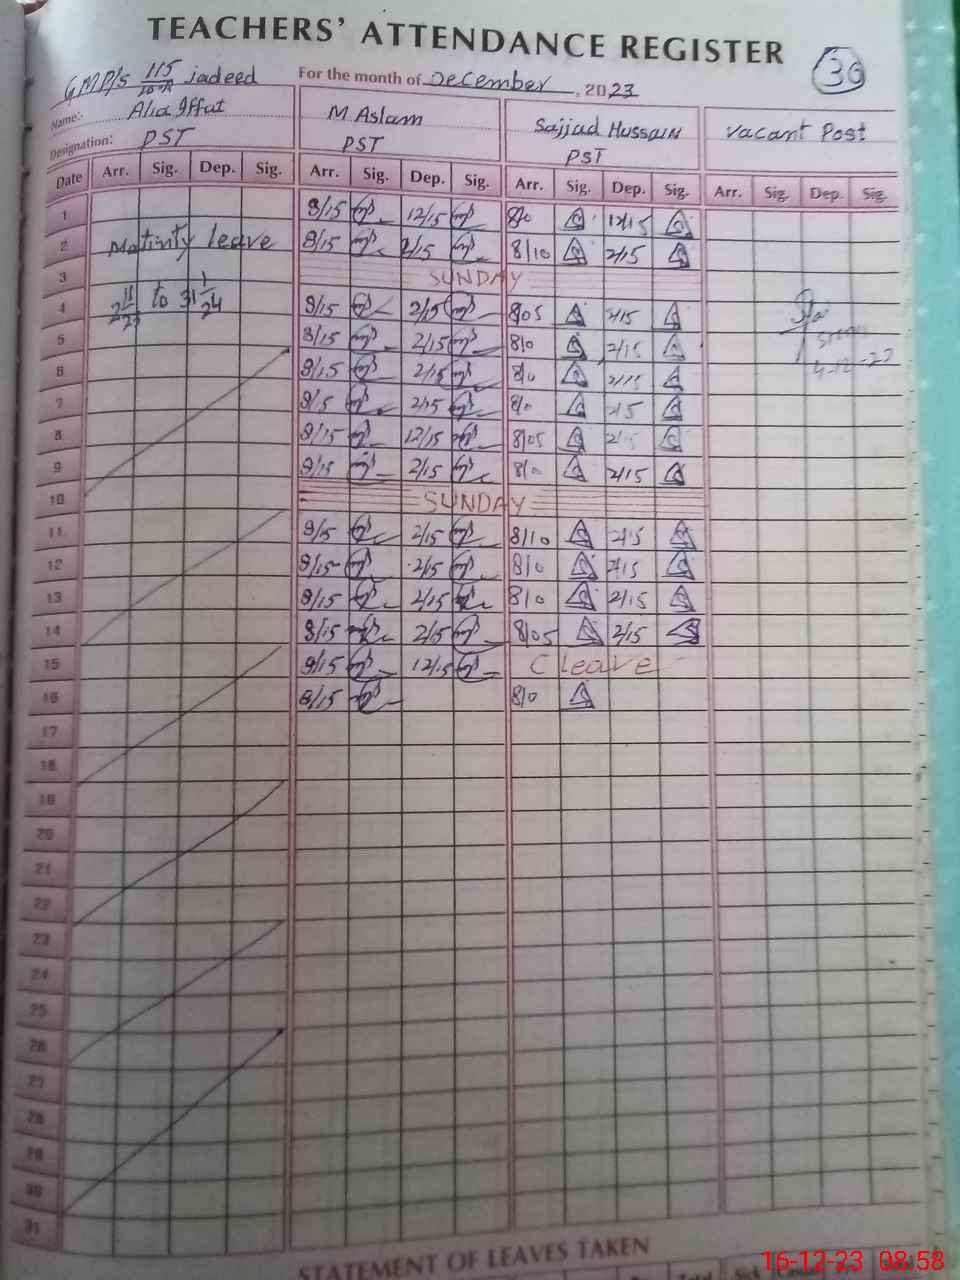 TEACHERS' ATTENDANCE REGISTER
30
GMP/s 115 jadeed
For the month of December, 2023
Name:- Alia Iffat M Aslam Sajjad Hussain Vacant Post
Designation: PST PST PST
Date Arr. Sig. Dep. Sig. Arr. Sig. Dep. Sig. Arr. Sig. Dep. Sig. Arr. Sig. Dep. Sig.
1 8/15 12/15 8/0 12/15
2 Matinty leave 8/15 2/15 8/10 2/15
3 SUNDAY
4 to 31 8/15 2/15 8/05 2/15
5 8/15 2/15 8/0 2/15
6 8/15 2/15 8/0 2/15
7 8/15 2/15 8/0 2/15
8 8/15 12/15 8/05
9 8/15 2/15 8/0 2/15
10 SUNDAY
11 8/15 2/15 8/10 2/15
12 8/15 2/15 8/0 2/15
13 8/15 2/15 8/0 2/15
14 8/15 2/15 8/05 2/15
15 8/15 12/15 C leave
16 8/15 8/0
17
18
19
20
21
22
23
24
25
26
27
28
29
30
31
STATEMENT OF LEAVES TAKEN
Total Sick
16-12-23 08:58